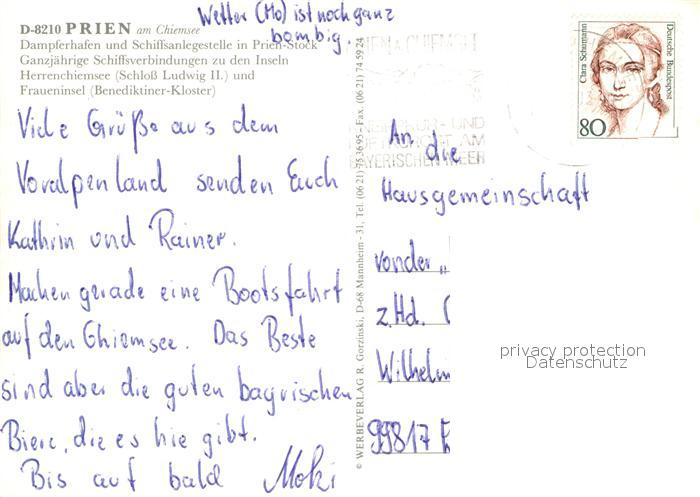 Wetter (Mo) ist noch ganz
bombig.
D-8210 PRIEN am Chiemsee
Dampferhafen und Schiffsanlegestelle in Prien-Stock
Ganzjährige Schiffsverbindungen zu den Inseln
Herrenchiemsee (Schloß Ludwig II.) und
Fraueninsel (Benediktiner-Kloster)
Viele Grüße aus dem
Voralpenland senden Euch
Kathrin und Rainer.
Machen gerade eine Bootsfahrt
auf den Chiemsee. Das Beste
sind aber die guten bayrischen
Biere, die es hie gibt.
Bis auf bald Moki
© WERBEVERLAG R. Gorzinski, D-68 Mannheim - 31, Tel. (06 21) 75 36 95 - Fax. (06 21) 74 59 24
CHIEMSEE
UND
AM
BAYERISCHEN MEER
Clara Schumann
Deutsche Bundespost
80
An die
Hausgemeinschaft
von der „
z.Hd.
Wilhelm
99817 E
privacy protection
Datenschutz